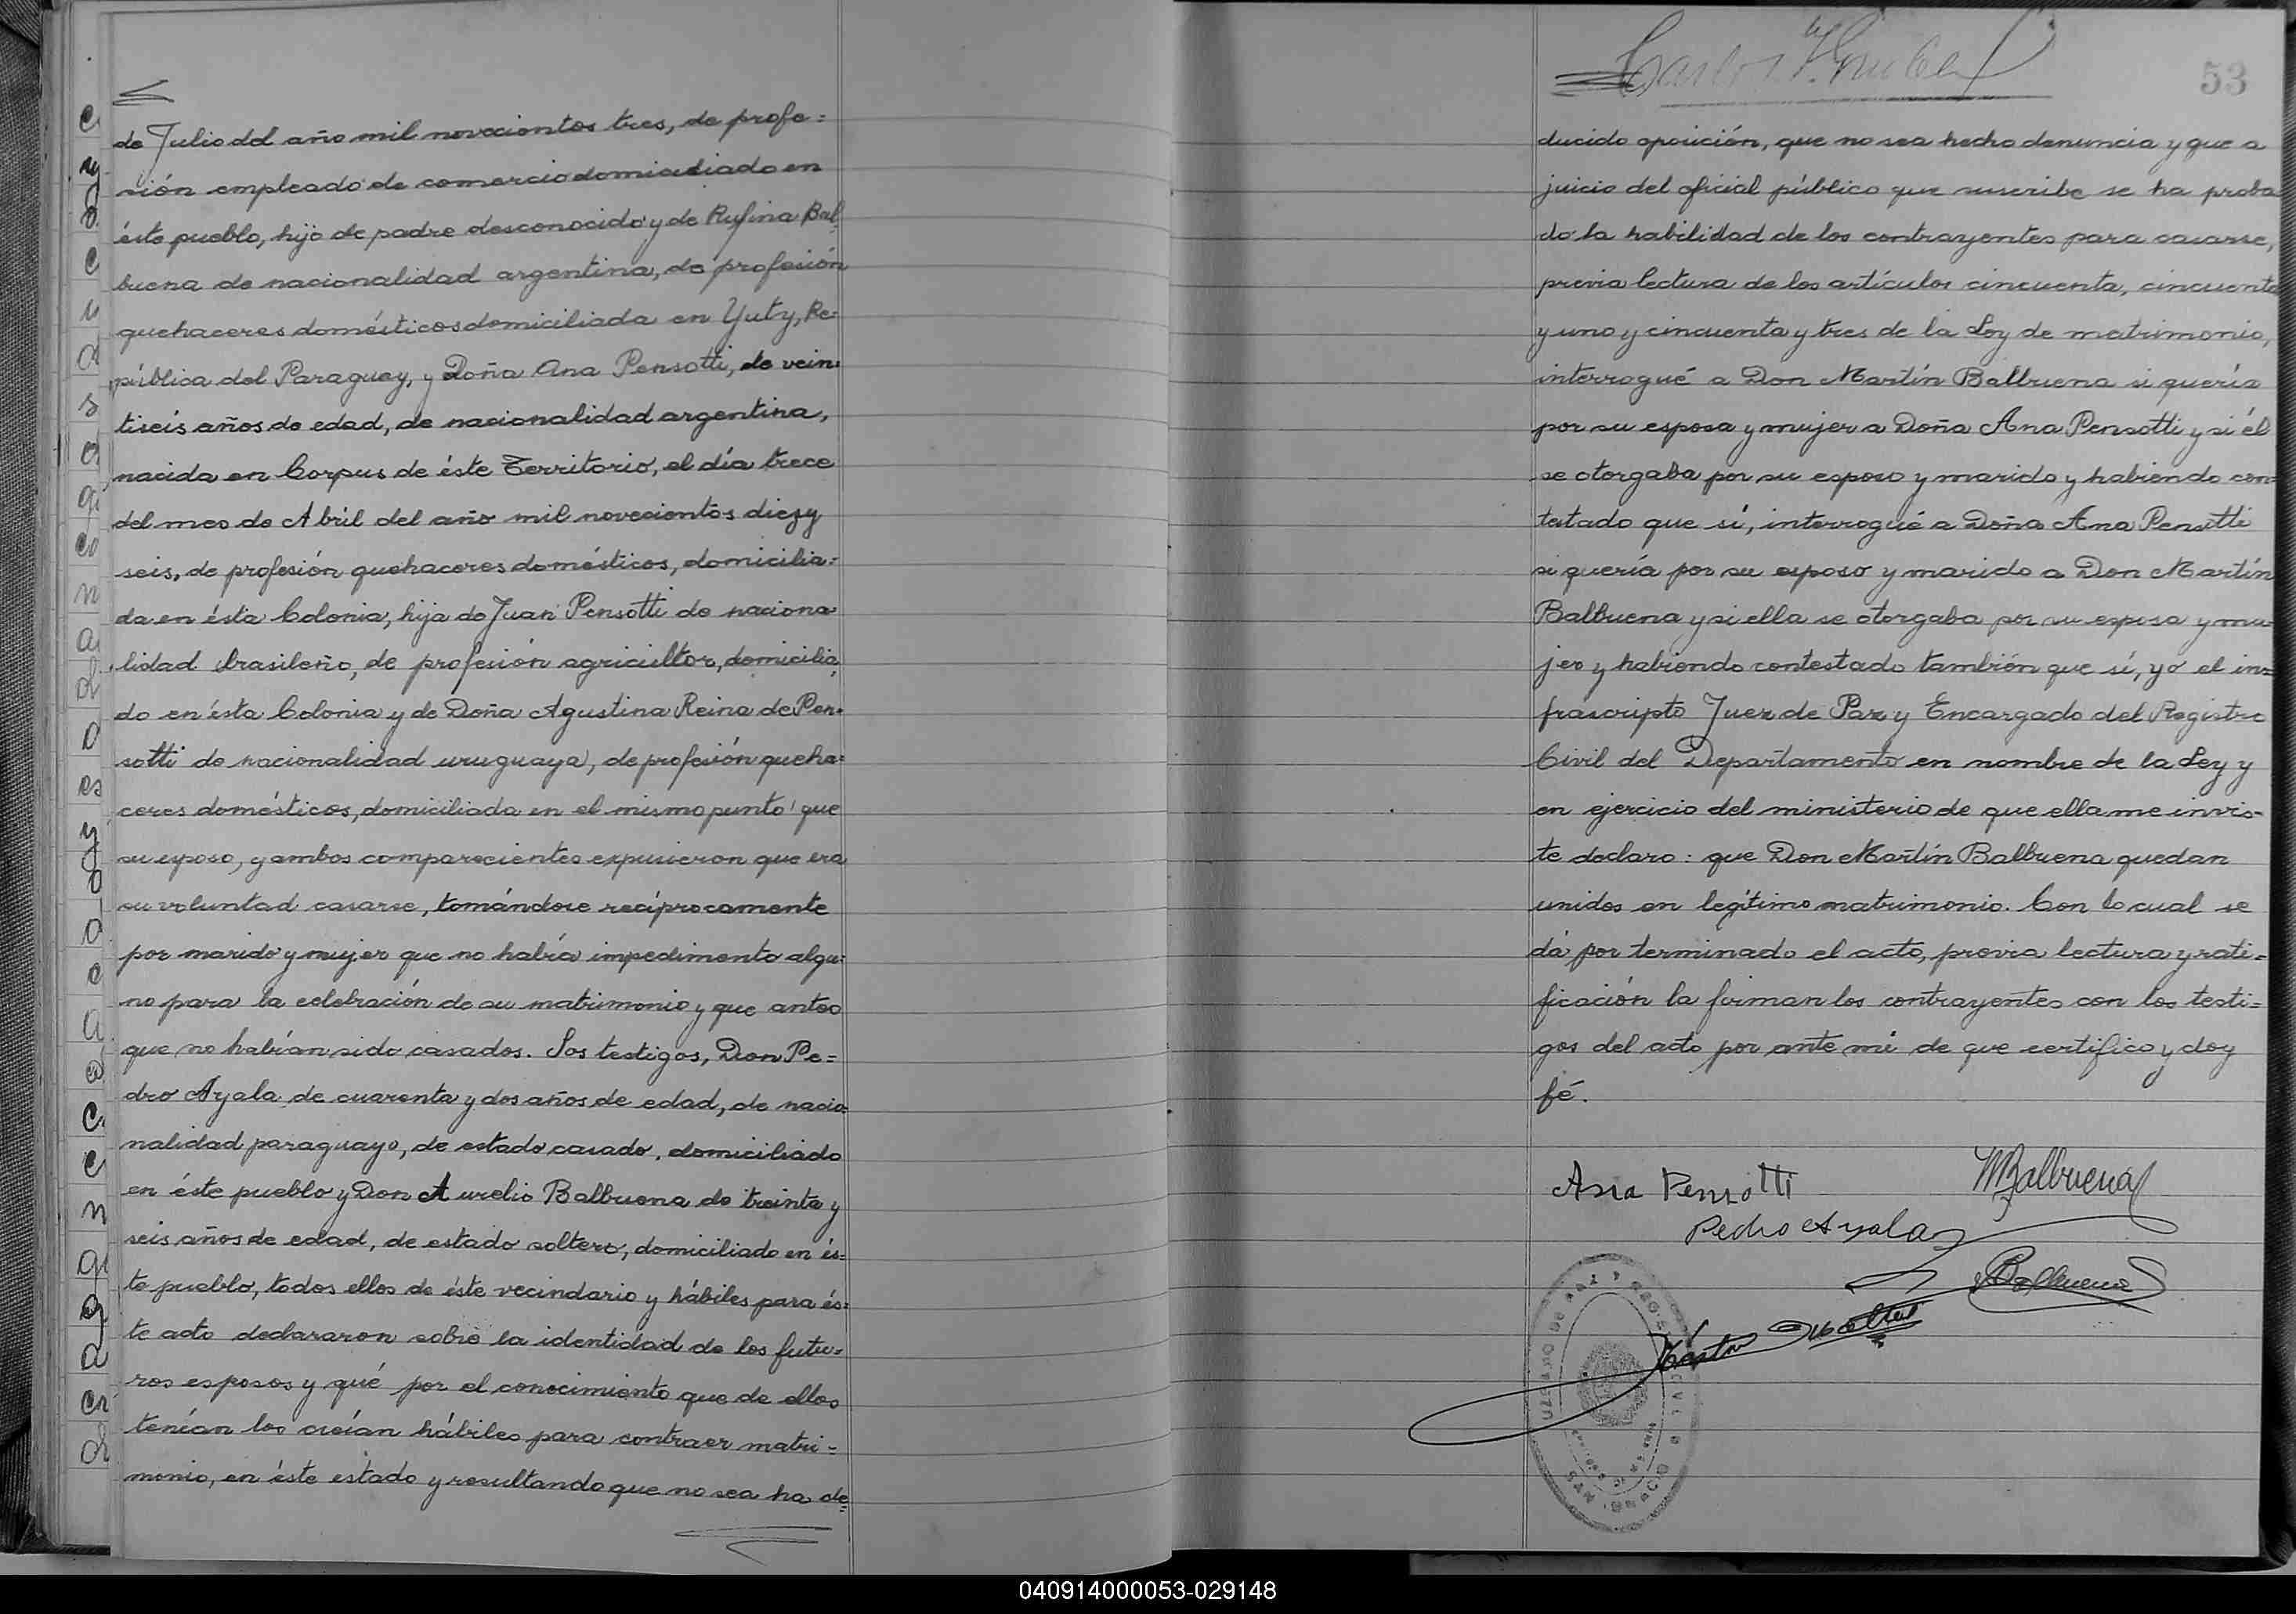 de Julio del año mil novecientos tres, de profe=
sión empleado de comercio domiciliado en
éste pueblo, hijo de padre desconocido y de Rufina Bal=
buena de nacionalidad argentina, de profesión
quehaceres domésticos domiciliada en Yuty, Re=
pública del Paraguay, y Doña Ana Pensotti, de vein=
tiseis años de edad, de nacionalidad argentina,
nacida en Corpus de éste Territorio, el día trece
del mes de Abril del año mil novecientos diez y
seis, de profesión quehaceres domésticos, domicilia=
da en ésta Colonia, hija de Juan Pensotti de naciona
lidad brasileño, de profesión agricultor, domicilia
do en ésta Colonia y de Doña Agustina Reina de Pen=
sotti de nacionalidad uruguaya, de profesión queha=
ceres domésticos, domiciliada en el mismo punto que
su esposo, y ambos comparecientes expusieron que era
su voluntad casarse, tomándose recíprocamente
por marido y mujer que no había impedimento algu=
no para la celebración de su matrimonio y que antes
que no habían sido casados. Los testigos, Don Pe=
dro Ayala de cuarenta y dos años de edad, de nacio=
nalidad paraguayo, de estado casado, domiciliado
en éste pueblo y Don Aurelio Balbuena de treinta y
seis años de edad, de estado soltero, domiciliado en és=
te pueblo, todos ellos de éste vecindario y hábiles para és=
te acto declararon sobre la identidad de los futu=
ros esposos y qué por el conocimiento que de ellos
tenían los creían hábiles para contraer matri=
monio, en éste estado y resultando que no sea ha de=
Carlos
53
ducido oposición, que no sea hecho denuncia y que a
juicio del oficial público que suscribe se ha proba
do la habilidad de los contrayentes para casarse,
previa lectura de los artículos cincuenta, cincuenta
y uno y cincuenta y tres de la Ley de matrimonio,
interrogué a Don Martín Balbuena si quería
por su esposa y mujer a Doña Ana Pensotti y si él
se otorgaba por su esposo y marido y habiendo con=
testado que sí, interrogué a Doña Ana Pensotti
si quería por su esposo y marido a Don Martín
Balbuena y si ella se otorgaba por su esposa y mu
jer y habiendo contestado también que sí, yo el in=
frascripto Juez de Paz y Encargado del Registro
Civil del Departamento en nombre de la Ley y
en ejercicio del ministerio de que ella me invis=
te declaro: que Don Martín Balbuena quedan
unidos en legítimo matrimonio. Con lo cual se
dá por terminado el acto, previa lectura y rati=
ficación la firman los contrayentes con los testi=
gos del acto por ante mi de que certifico y doy
fé.
Ana Pensotti
MBalbuena
Pedro Ayala
Balbuena
JUZGADO DE PAZ Y REGISTRO CIVIL
SAN IGNACIO
040914000053-029148